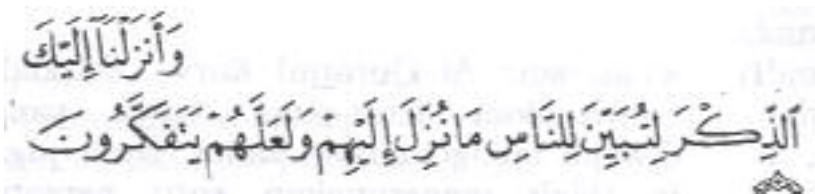 وَأَنزَلْنَآ إِلَيْكَ
ٱلذِّكْرَ لِتُبَيِّنَ لِلنَّاسِ مَا نُزِّلَ إِلَيْهِمْ وَلَعَلَّهُمْ يَتَفَكَّرُونَ